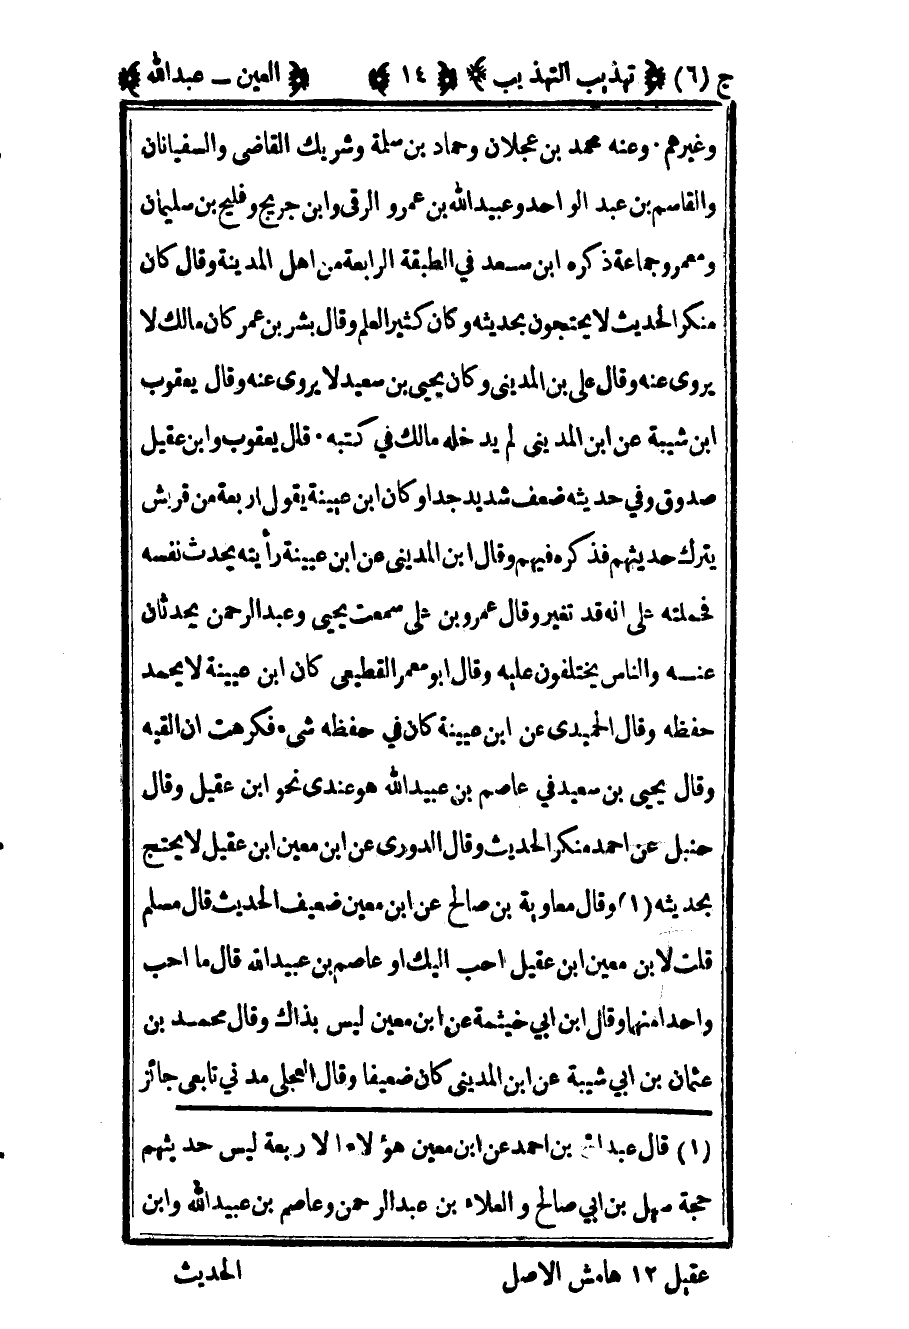 ج (٦) ﴿ تهذيب التهذيب ﴾ ﴿ ١٤ ﴾ ﴿ العين ــ عبدالله ﴾
وغيرهم · وعنه محمد بن عجلان وحماد بن سلمة وشريك القاضى والسفيانان
والقاسم بن عبد الواحد وعبيدالله بن عمرو الرقى وابن جريج وفليح بن سليمان
ومعمر وجماعة ذكره ابن سعد في الطبقة الرابعة من اهل المدينة وقال كان
منكر الحديث لا يحتجون بحديثه وكان كثير العلم وقال بشر بن عمر كان مالك لا
يروى عنه وقال على بن المدينى وكان يحيى بن سعيد لا يروى عنه وقال يعقوب
ابن شيبة عن ابن المدينى لم يدخله مالك في كتبه · قال يعقوب وابن عقيل
صدوق وفي حديثه ضعف شديد جدا وكان ابن عيينة يقول اربعة من قريش
يترك حديثهم فذكره فيهم وقال ابن المدينى عن ابن عيينة رأيته يحدث نفسه
فحملته على انه قد تغير وقال عمرو بن على سمعت يحيى وعبدالرحمن يحدثان
عنه والناس يختلفون عليه وقال ابو معمر القطيعى كان ابن عيينة لا يحمد
حفظه وقال الحميدى عن ابن عيينة كان في حفظه شيء فكرهت ان القيه
وقال يحيى بن سعيد في عاصم بن عبيدالله هو عندى نحو ابن عقيل وقال
حنبل عن احمد منكر الحديث وقال الدورى عن ابن معين ابن عقيل لا يحتج
بحديثه (١) وقال معاوية بن صالح عن ابن معين ضعيف الحديث قال مسلم
قلت لابن معين ابن عقيل احب اليك او عاصم بن عبيدالله قال ما احب
واحدا منهما وقال ابن ابي خيثمة عن ابن معين ليس بذاك وقال محمد بن
عثمان بن ابي شيبة عن ابن المدينى كان ضعيفا وقال العجلى مدني تابعى جائز
(١) قال عبدالله بن احمد عن ابن معين هؤلاء الاربعة ليس حديثهم
حجة سهيل بن ابي صالح والعلاء بن عبدالرحمن وعاصم بن عبيدالله وابن
عقيل ١٢ هامش الاصل
الحديث